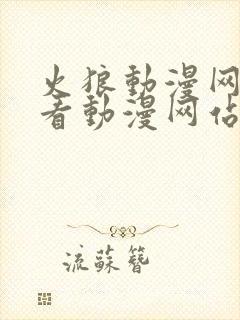 火狼動漫网
看動漫网佔
流蘇簪